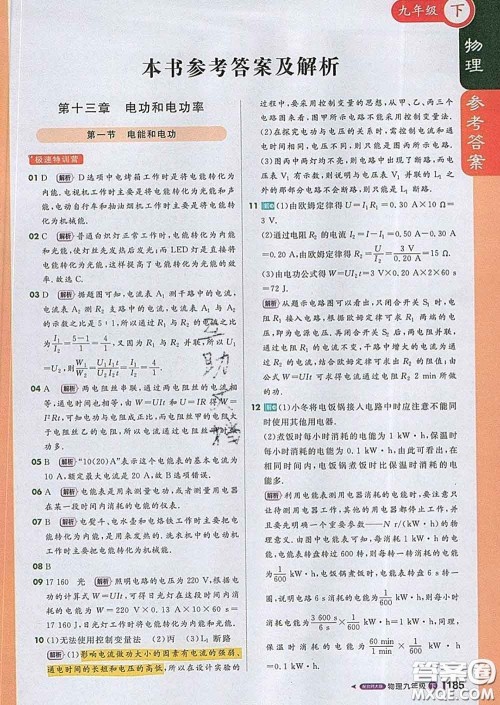 九年级 下
物理
参考答案
本书参考答案及解析
第十三章 电功和电功率
第一节 电能和电功
极速特训营
01 D 解析 D选项中电烤箱工作时是将电能转化为
内能,电视机工作时主要是将电能转化为光能和声
能,电动自行车和抽油烟机工作时主要是将电能转
化为机械能.
02 C 解析 普通白炽灯正常工作时,电能转化为内能
和光能,使灯丝先发热后发光;而LED灯是直接将
电能转化为光能,这样提高了电能转化为光能的效
率.故选C.
03 D 解析 据题图可知,电流表A₁测干路中的电流,
电流表A₂测灯L₂支路中的电流,电流表A₁与A₂
的示数之比是5∶1,
I₁/I₂=(5-1)/1=4/1,又因为
所以I₁U₁t/I₂U₂t=4/1.
04 A 解析 两电阻丝串联,通过两电阻丝的电流相
等,通电时间相同,由W=UIt和U=IR得W=
I²Rt,可知电功与电阻成正比,所以图中
05 B 解析 "10(20)A"表示这个电能表的基本电流为
10 A,额定最大电流是20 A.
06 A 解析 电能表是用来测量电功,或者测量用电器
在某一段时间内消耗的电能的仪表.
07 B 解析 电熨斗、电水壶和电烙铁工作时主要把电
能转化为内能,是用来发热的.洗衣机中的电动机
工作时主要把电能转化为机械能.
08 B
09 17 160 光 解析 照明电路的电压为220 V,根据
电功的计算公式得W=UIt=220 V×0.13 A×
10×60 s=17 160 J.电灯工作时,主要将电能转化为
光能.
10 (1)无法使用控制变量法 (2)丙 (3)L₁断路
解析 (1)影响电流做功大小的因素有电流的强弱、
通电时间的长短和电压的高低,所以在设计实验的
过程中,要采用控制变量的思想,从甲、乙、丙三个
电路图来看,甲电路图不能采用控制变量法.
(2)在探究电功与电压的关系时,需要控制电流和
通电时间相同,所以选择丙电路图.(3)丙图中,电
压表V₁示数为零,则说明与电压表V₁并联的L₁之
外的那部分电路不可能断路,即灯泡L₁断路.
11 解 (1)由欧姆定律得U=I₁R₁=0.30 A×10 Ω=
3 V.
(2)通过电阻R₂的电流I₂=I-I₁=0.50 A-
0.30 A=0.20 A,由欧姆定律得R₂=U/I₂=3 V/0.20 A=
15 Ω.
(3)由电功公式得W=UI₂t=3 V×0.20 A×2×60 s=
72 J.
解析 从题示电路图可以看出,不论开关S₁断开还
是闭合,电源电压不变,闭合开关S₁时,电阻R₂被
短接,根据欧姆定律可求出电阻R₁两端的电压即
电源的电压,并且电源电压是不变的;当闭合开关
S₁、S₂时,电阻R₁、R₂并联,并联电路中各支路两端
的电压相等,通过电阻R₁的电流不变,干路中电流
增大,干路中增大的电流为通过R₂的电流,根据欧
姆定律可求出R₂的阻值;R₂的电压和电流已知,由
公式W=UIt可求出电流通过电阻R₂ 2 min所做
的功.
12 解 (1)小冬将电饭锅接入电路中时应注意不能同
时使用其他用电器.
(2)煮饭时每小时消耗的电能为1 kW·h,保温时
每小时消耗的电能为0.1 kW·h,由此可看出,在
相同时间内,电饭锅煮饭时比保温时消耗的电能
多.
解析 利用电能表测用电器消耗的电能时,要保证
在测量时其他用电器都停止工作,而且在
并且要先明确一个重要的数据,即电能表每转一转
时,电路中消耗的电能为1/600 kW·h.
由题表中数据可知,电饭锅煮饭时消耗的电能等于
电能表转盘转过600转,则每转一转时消耗的电能
为1/600 kW·h,电饭锅煮饭时,电能表转盘6 s转
一转,则消耗的电能为1/600 kW·h,则煮饭时每小
时消耗的电能为3 600 s/6 s×1/600 kW·h=1 kW·h;同
理可求出保温时每小时消耗的电能为60 min/1 min×
1/600 kW·h=0.1 kW·h.
物理九年级 下 1185
答案圈